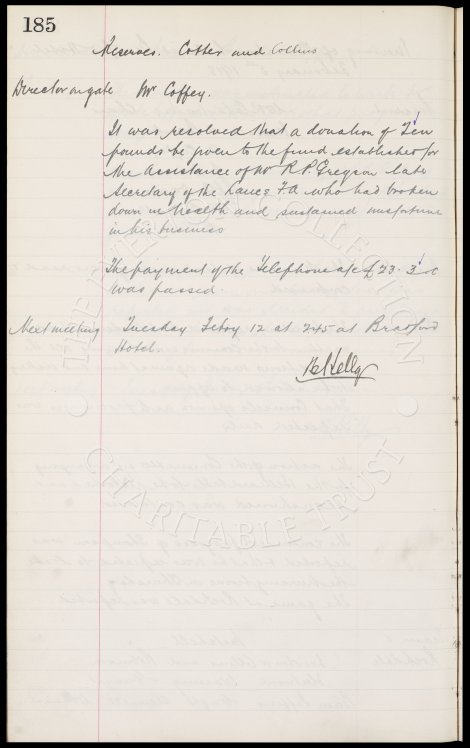 185
Reserves. Cotter and Collins
Director on gate Mr Coffey.
It was resolved that a donation of Ten
pounds be given to the fund established for
the assistance of Mr R P Gregson late
Secretary of the Lancs F.A. who had broken
down in health and sustained misfortune
in his business
The payment of the Telephone a/c £23. 3
was passed.
Next meeting Tuesday Febry 12 at 2.45 at Bradford
Hotel
THE EVERTON COLLECTION
CHARITABLE TRUST